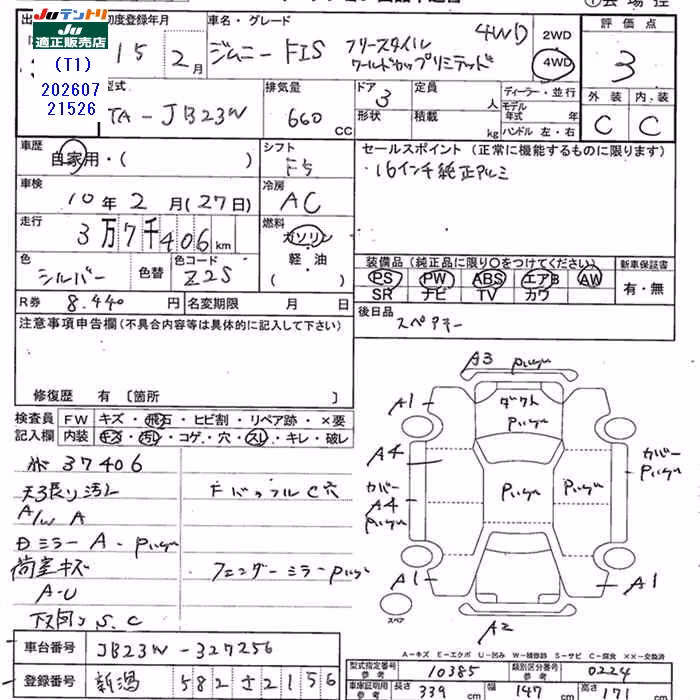 JUテントリ
JU適正販売店
(T1)
202607
21526
初度登録年月
15 2月
車名・グレード
ジムニー FIS フリースタイル
ワールドカップリミテッド
4WD
2WD
4WD
評価点
3
外装 内装
C C
型式
TA-JB23W
排気量
660 CC
ドア
3
形状
定員 人
積載 kg
ディーラー・並行
モデル年式 年
ハンドル 左・右
車歴
自家用・( )
シフト
F5
セールスポイント(正常に機能するものに限ります)
・16インチ純正アルミ
車検
10年2月(27日)
冷房
AC
走行
3万7千406km
燃料
ガソリン
軽・油
( )
色
シルバー
色替
色コード
Z2S
装備品(純正品に限り○をつけてください)
PS PW ABS エアB AW
SR ナビ TV カワ
新車保証書
有・無
R券 8.440円
名変期限 月 日
後日品
スペアキー
注意事項申告欄(不具合内容等は具体的に記入して下さい)
修復歴 有 [箇所 ]
検査員
記入欄
FW キズ・飛石・ヒビ割・リペア跡・×要
内装 キズ・汚れ・コゲ・穴・スレ・キレ・破レ
37406
天張り汚レ
FバッフルC穴
A/W A
Dミラー A-
荷室キズ
フェンダーミラー
A-U
下回り S.C
A3
A1
ダクト
A4
カバー
カバー
A4
A1
A1
スペア
A2
A-キズ E-エクボ U-凹み W-補修跡 S-サビ C-腐食 ××-交換済
車台番号 JB23W-327256
登録番号 新潟 582 さ 2156
型式指定番号
参考
10385
類別区分番号
参考
0224
車庫証明用
参考
長さ 339 cm
幅 147 cm
高さ 171 cm